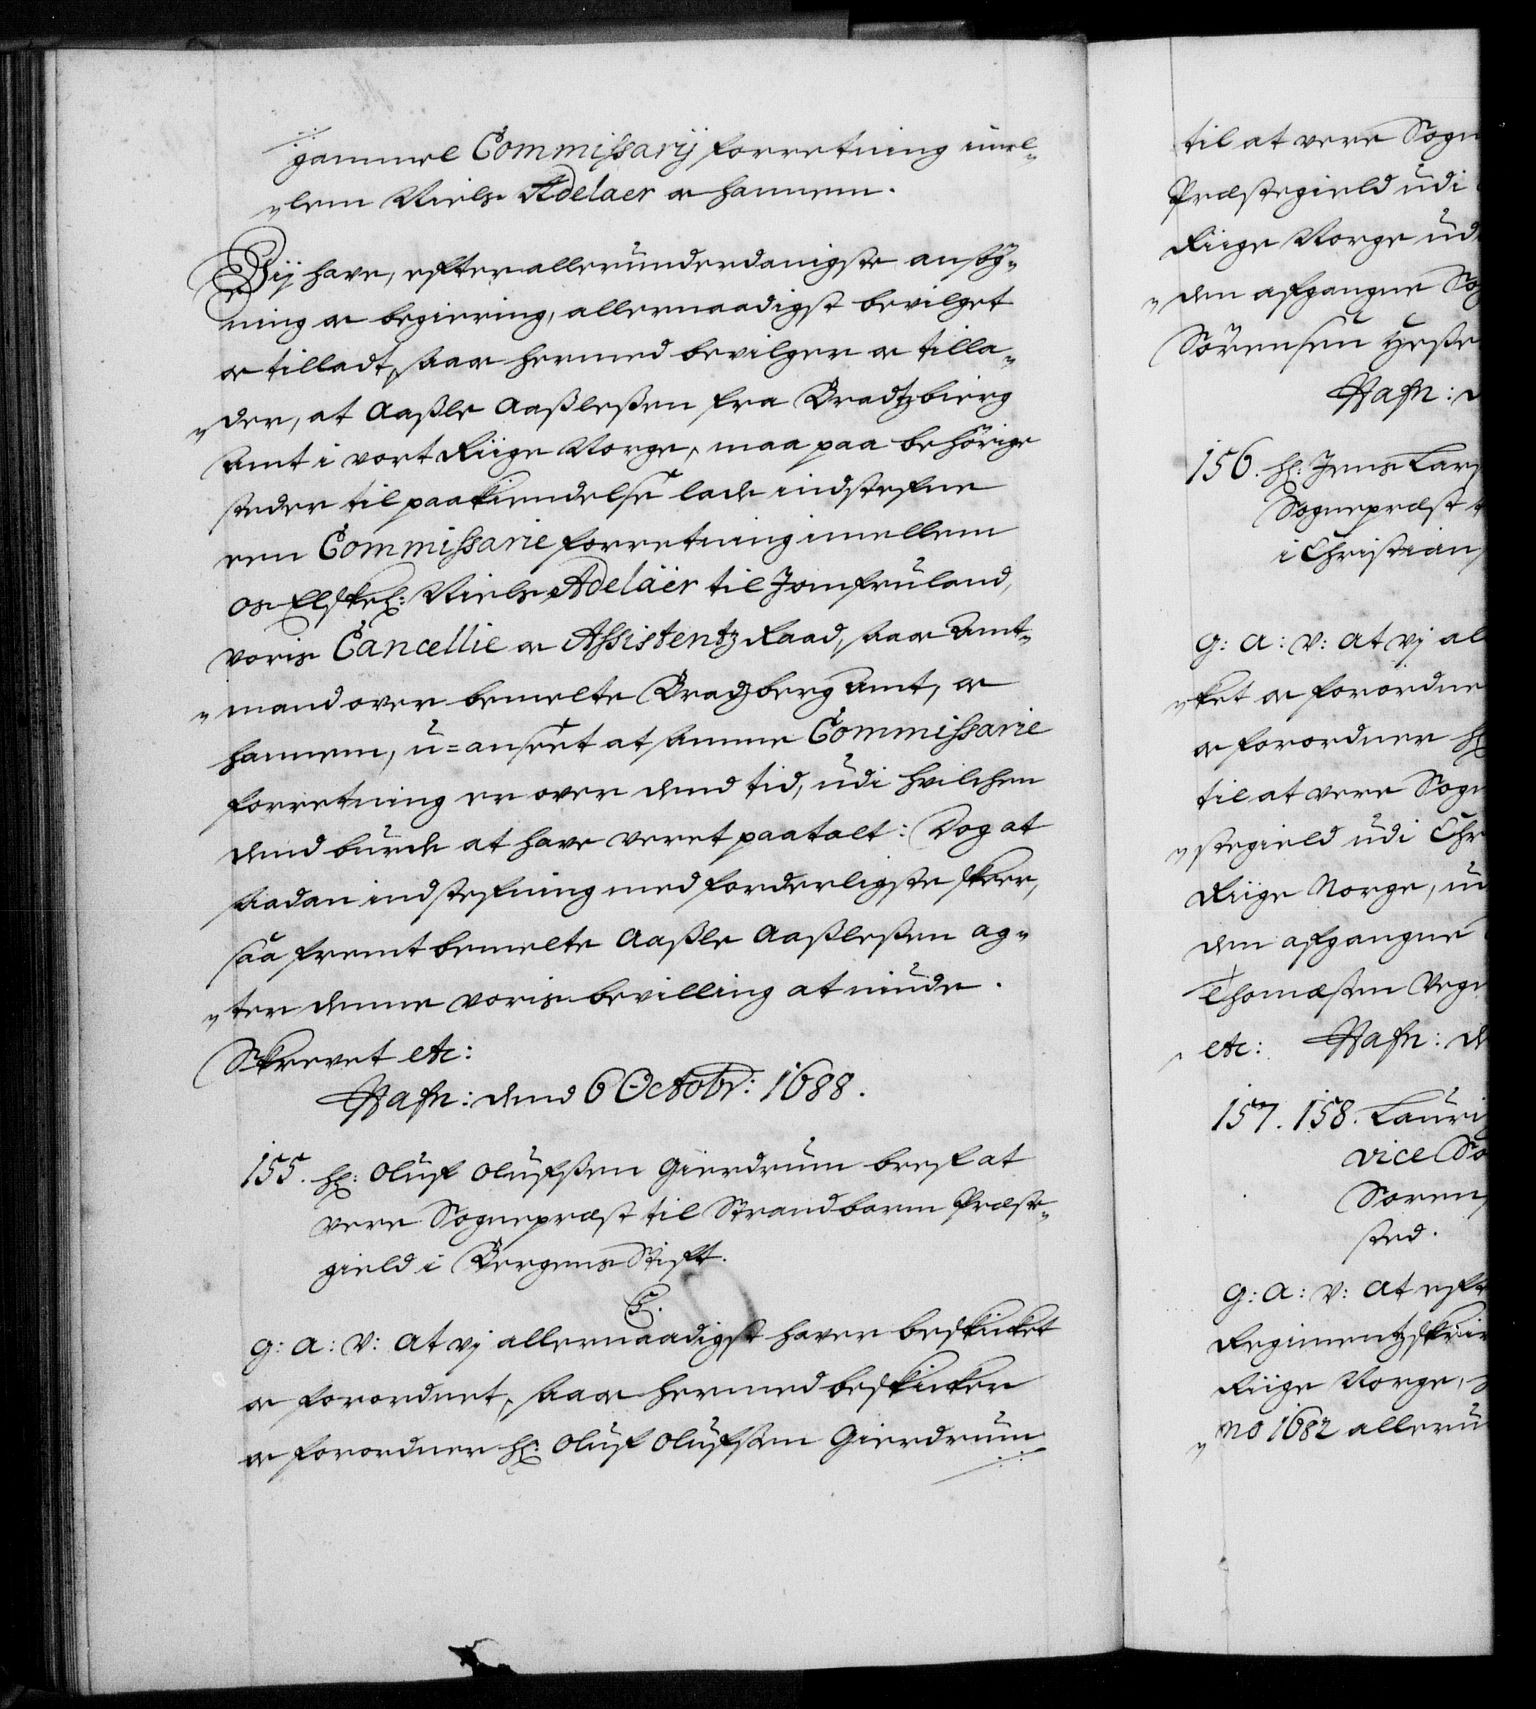 gammel Commissarij forretning imel„
„lem Niels Adelaer oc hannem.
Vij have, efter allerunderdanigste ansøg„
ning oc begiering, allernaadigst bevilget
oc tilladt, saa oc hermed bevilger oc tilla„
„der, at Aaßle Aaßleßen fra Bradtzbierg
Amt i vort Riige Norge, maa paa behørige
steder til paakiendelse lade indstefne
een Commissarie forretning imellem
Os Elskel: Niels Adelaer til Jomfruland,
voris Cancellie oc Assistentz Raad, saa oc Amt„
„mand over bemelte Bratzberg Amt, oc
hannem, u=anseet at samme Commissarie
forretning er over dend tid, udi hvilchen
dend burde at have veret paatalt: Dog at
saadan indstefning med forderligste skeer,
saa fremt bemelte Aaßle Aaßleßen ag„
„ter denne voris bevilling at niude.
Skrevet etc:
Hafn: dend 6 Octobr: 1688.
155. Hr: Oluf Olufsen Gierdrum bref at
vere Sognepræst til Strandbarm Præste„
gield i Bergens Stift.
C5.
G: A: V: At vj allernaadigst haver beskicket
oc forordnet, saa oc hermed beskicker
oc forordner Hr: Oluf Olufsen Gierdrum
til at vere Sogn
Præstegield udi
Riige Norge ud
„den afgangne Sog
Sörensen Heste
Hafn: d
156. Hr: Jens Lars
Sognepræst t
i Christian
G: A: V: At vj al
„ket oc forordne
oc forordner Hr
til at vere Sogn
„stegield udi Chr
Riige Norge, ud
den afgangne
Thomæsen Vegn
etc: Hafn: d
157. 158. Lauri
vice So
Soren
sted.
G: A: V: At efte
Regimentzskriv
Riige Norge,
„no 1682 alleru